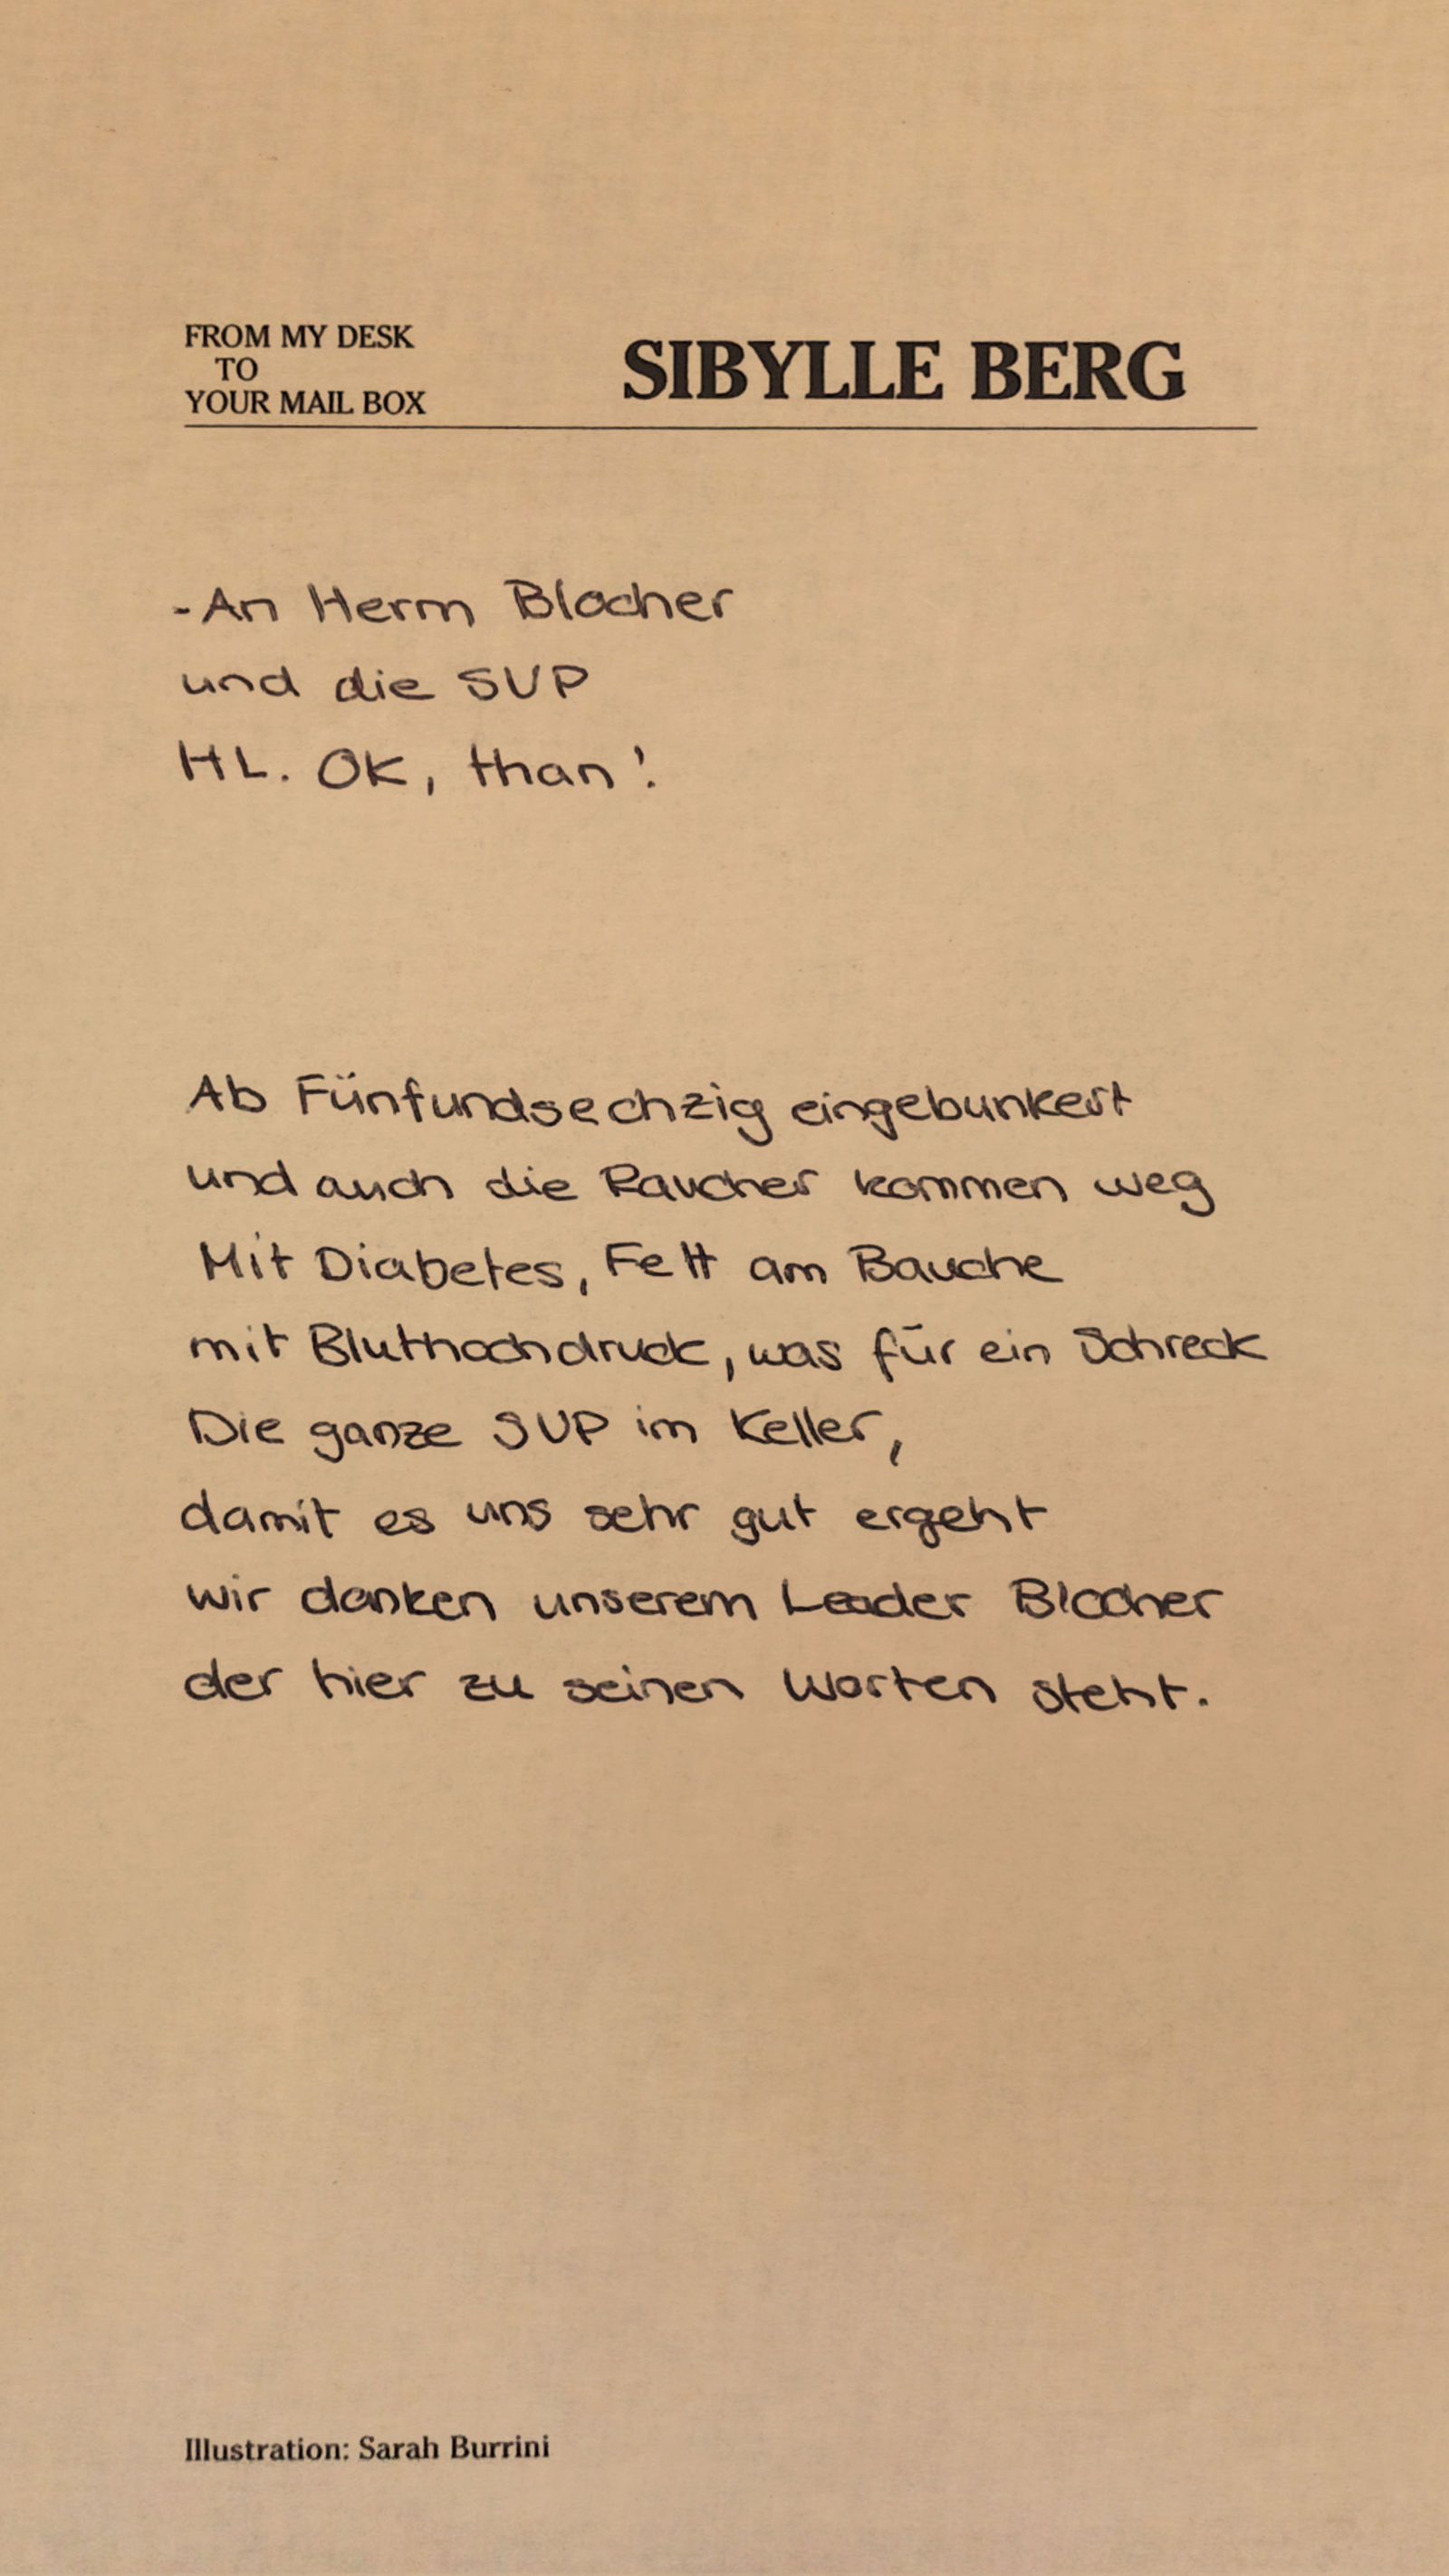 FROM MY DESK
TO
YOUR MAIL BOX
SIBYLLE BERG
-An Herrn Blocher
und die SVP
HL. OK, than!
Ab Fünfundsechzig eingebunkert
und auch die Raucher kommen weg
Mit Diabetes, Fett am Bauche
mit Bluthochdruck, was für ein Schreck
Die ganze SVP im Keller,
damit es uns sehr gut ergeht
wir danken unserem Leader Blocher
der hier zu seinen Worten steht.
Illustration: Sarah Burrini